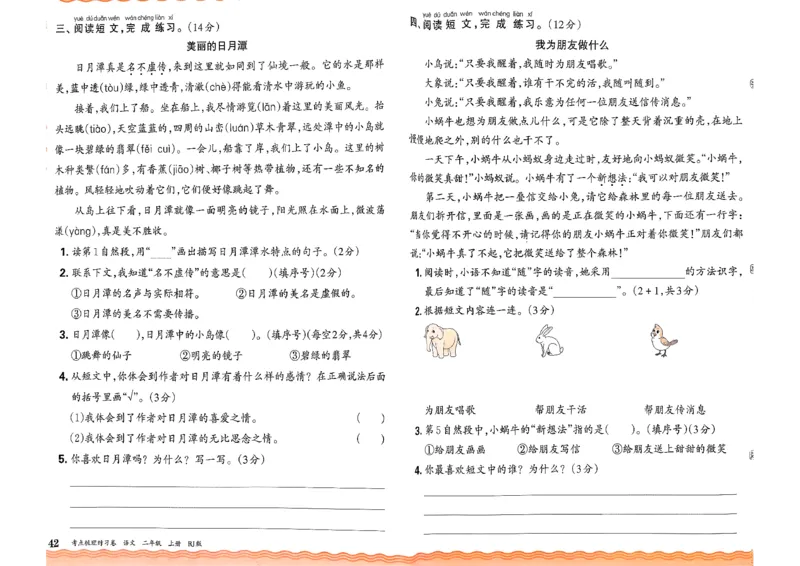 yuè dú duǎn wén  wán chéng liàn xí
三、阅读短文,完成练习。(14分)
美丽的日月潭
日月潭真是名不虚传,来到这里就如同到了仙境一般。它的水是那样
美,蓝中透(tòu)绿,绿中透青,清澈(chè)得能看清水中游玩的小鱼。
接着,我们上了船。坐在船上,我尽情游览(lǎn)着这里的美丽风光。抬
头远眺(tiào),天空蓝蓝的,四周的山峦(luán)草木青翠,远处潭中的小岛就
像一块碧绿的翡翠(fěi cuì)。一会儿,船靠了岸,我们上了小岛。这里的树
木种类繁(fán)多,有香蕉(jiāo)树、椰子树等热带植物,还有一些不知名的
植物。风轻轻地吹动着它们,它们便好像跳起了舞。
从岛上往下看,日月潭就像一面明亮的镜子,阳光照在水面上,微波荡
漾(yàng),真是美不胜收。
1. 读第1自然段,用“﹏﹏”画出描写日月潭潭水特点的句子。(2分)
2. 联系下文,我知道“名不虚传”的意思是(　　)(填序号)(2分)
①日月潭的名声与实际相符。　②日月潭的美名是虚假的。
③日月潭的美名不需要传播。
3. 日月潭像(　　),日月潭中的小岛像(　　)。(填序号)(每空2分,共4分)
①跳舞的仙子　②明亮的镜子　③碧绿的翡翠
4. 从短文中,你体会到作者对日月潭有着什么样的感情？在正确说法后面
的括号里画“√”。(3分)
(1)我体会到了作者对日月潭的喜爱之情。　(　　)
(2)我体会到了作者对日月潭的无比思念之情。　(　　)
5. 你喜欢日月潭吗？为什么？写一写。(3分)
42　考点梳理精习卷　语文　二年级　上册　RJ版
yuè dú duǎn wén  wán chéng liàn xí
四、阅读短文,完成练习。(12分)
我为朋友做什么
小鸟说:“只要我醒着,我随时为朋友唱歌。”
大象说:“只要我醒着,谁有干不完的活,我随叫随到。”
小兔说:“只要我醒着,我乐意为任何一位朋友送信传消息。”
小蜗牛也想为朋友做点儿什么,可是它除了整天背着沉重的壳,在地上
慢慢地爬之外,别的什么也干不了。
一天下午,小蜗牛从小蚂蚁身边走过时,友好地向小蚂蚁微笑。“小蜗牛,
你的微笑真甜!”小蚂蚁说。小蜗牛有了一个新想法:“我可以对朋友微笑!”
第二天,小蜗牛把一叠信交给小兔,请它给森林里的每一位朋友送去。
朋友们拆开信,里面是一张画,画的是正在微笑的小蜗牛,下面还有一行字:
“当你觉得不开心的时候,请记得你的朋友小蜗牛正对着你微笑!”朋友们都
说:“小蜗牛真了不起,它把微笑送给了整个森林!”
1. 阅读时,小语不知道“随”字的读音,她采用____________的方法识字,
最后知道了“随”字的读音是“____________”。(2+1,共3分)
2. 根据短文内容连一连。(3分)
为朋友唱歌　帮朋友干活　帮朋友传消息
3. 第5自然段中,小蜗牛的“新想法”指的是(　　)。(填序号)(3分)
①给朋友画画　②给朋友写信　③给朋友送上甜甜的微笑
4. 你最喜欢短文中的谁？为什么？(3分)